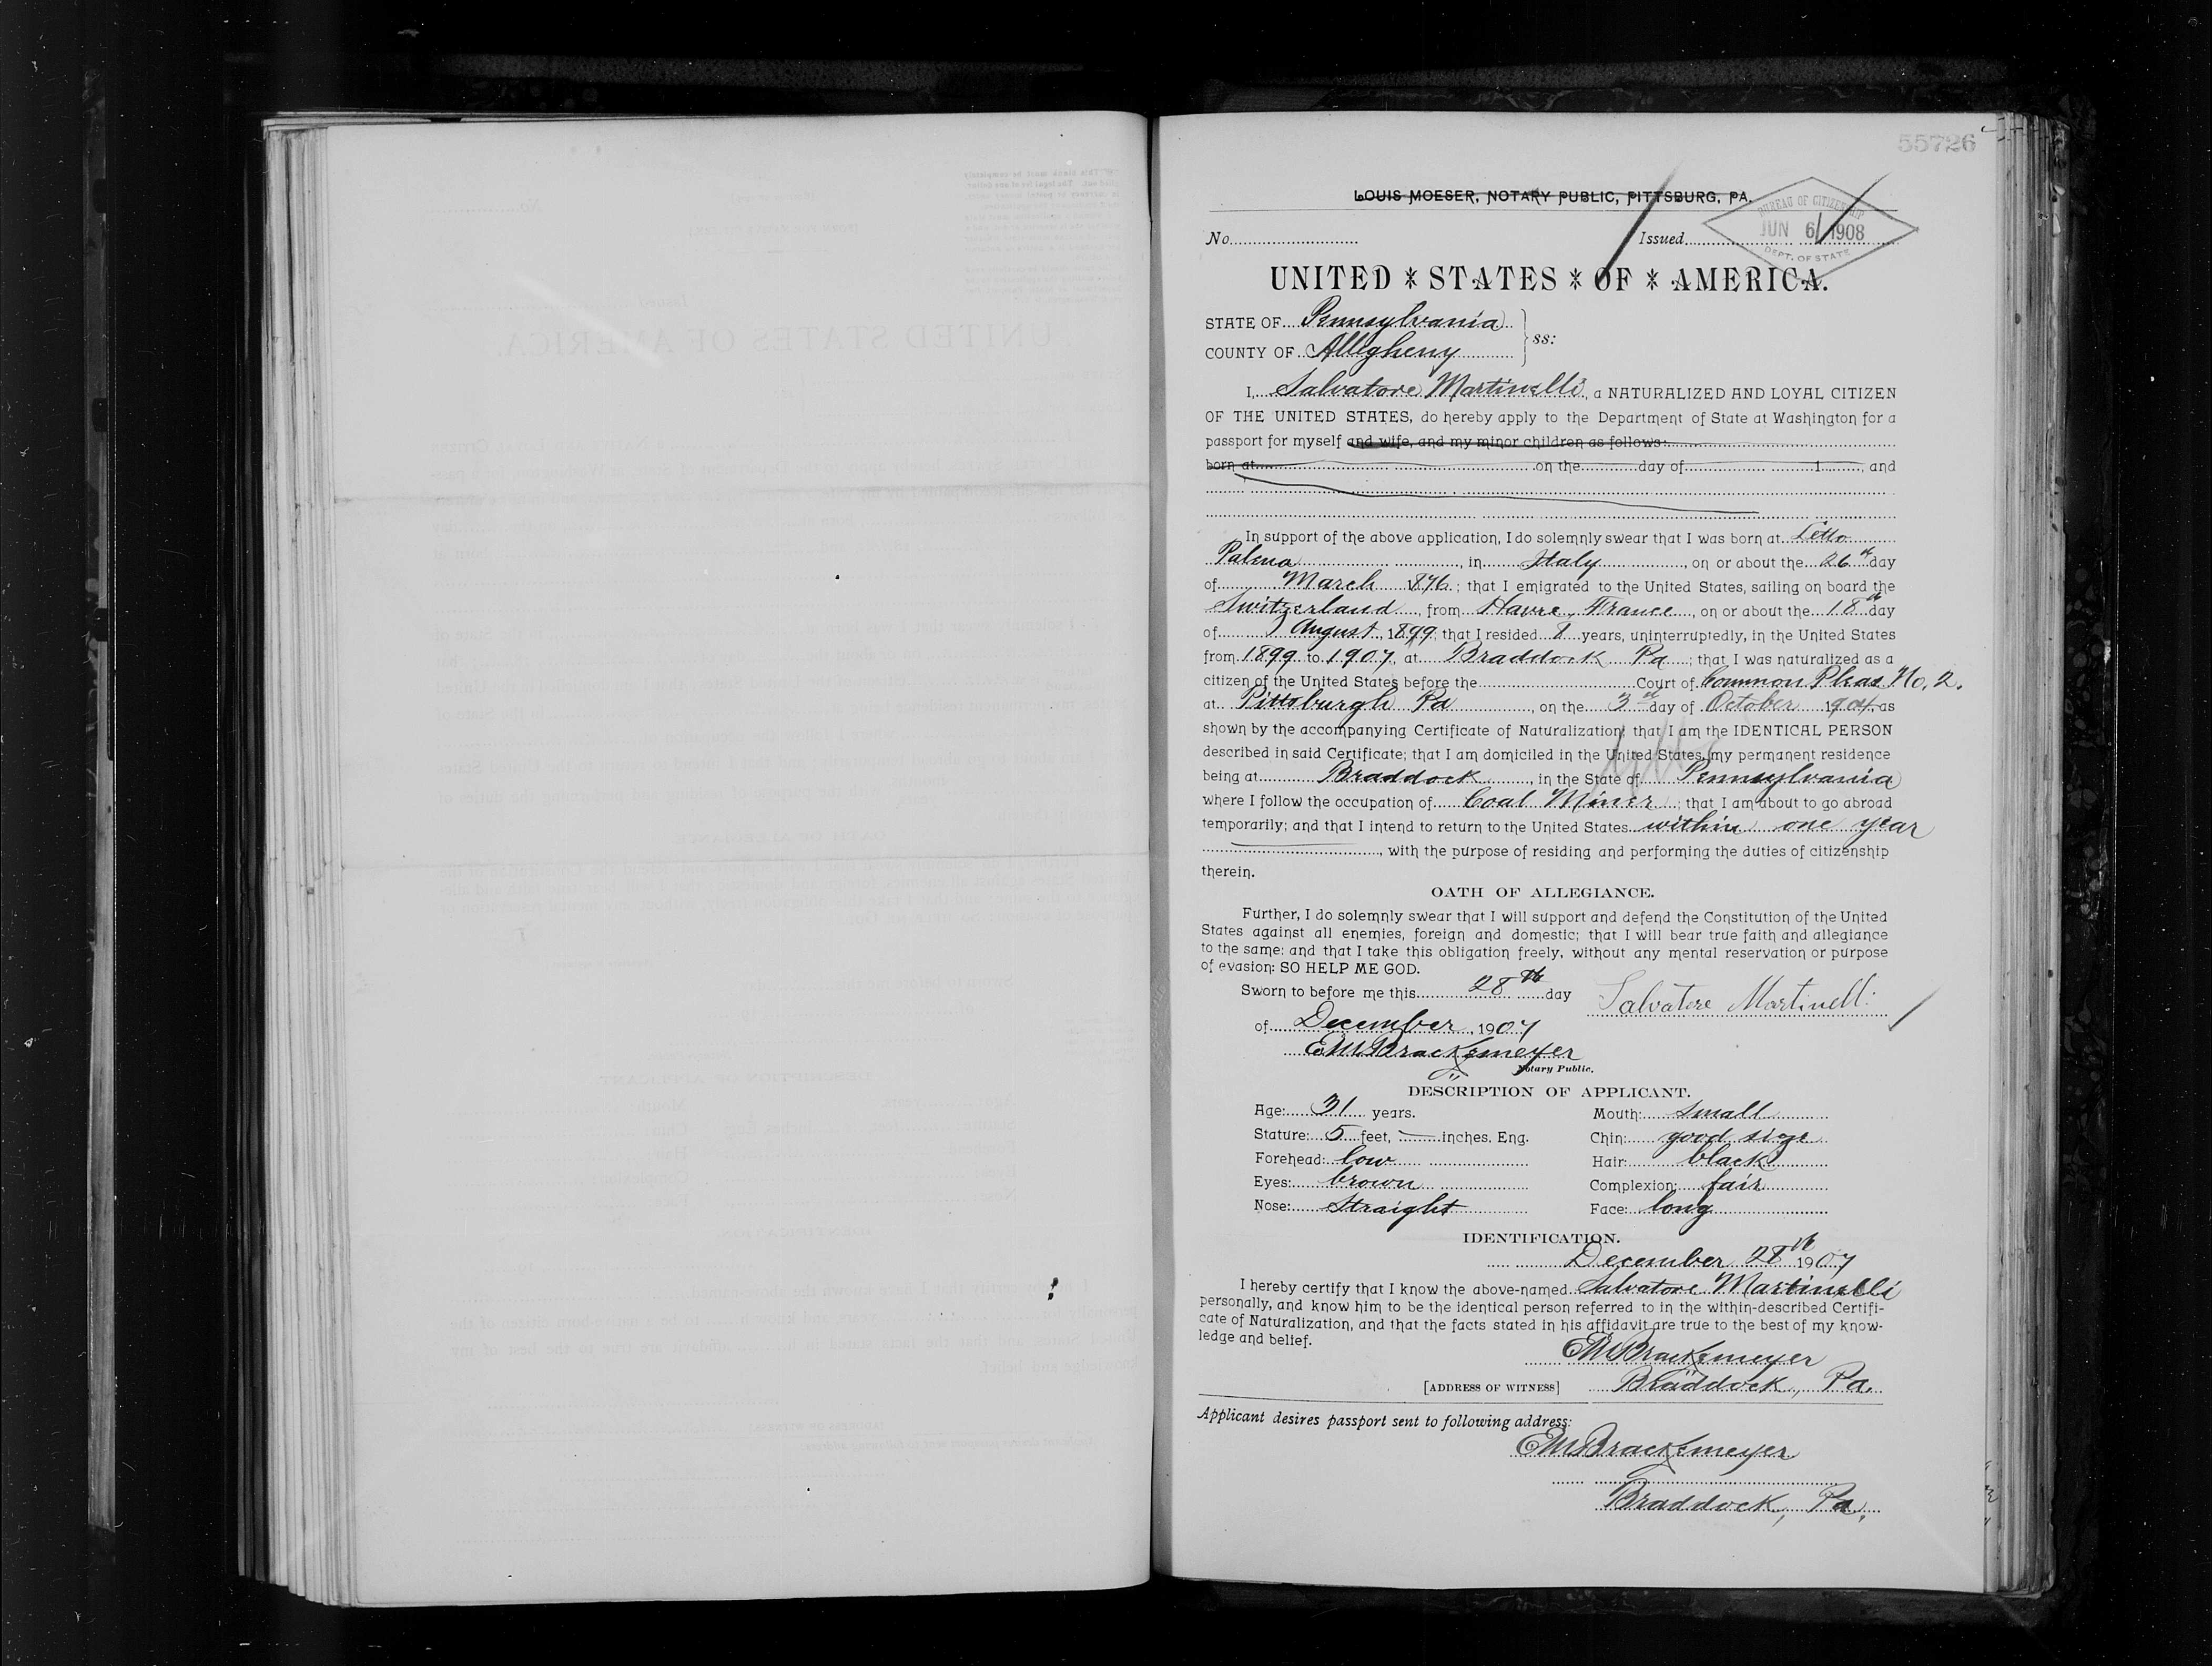 55726
LOUIS MOESER, NOTARY PUBLIC, PITTSBURG, PA.
No. Issued
BUREAU OF CITIZENSHIP
JUN 6 1908
DEPT. OF STATE
UNITED * STATES * OF * AMERICA.
STATE OF Pennsylvania
COUNTY OF Allegheny } ss:
I, Salvatore Martinelli, a NATURALIZED AND LOYAL CITIZEN
OF THE UNITED STATES, do hereby apply to the Department of State at Washington for a
passport for myself and wife, and my minor children as follows:
born at on the day of 1 , and
In support of the above application, I do solemnly swear that I was born at Letto
Palena, in Italy, on or about the 26th day
of March 1876; that I emigrated to the United States, sailing on board the
Switzerland, from Havre, France, on or about the 18th day
of August, 1899; that I resided 8 years, uninterruptedly, in the United States
from 1899 to 1907, at Braddock Pa; that I was naturalized as a
citizen of the United States before the Court of Common Pleas No. 2.
at Pittsburgh Pa, on the 3rd day of October 1904 as
shown by the accompanying Certificate of Naturalization; that I am the IDENTICAL PERSON
described in said Certificate; that I am domiciled in the United States, my permanent residence
being at Braddock, in the State of Pennsylvania
where I follow the occupation of Coal Miner; that I am about to go abroad
temporarily; and that I intend to return to the United States within one year
, with the purpose of residing and performing the duties of citizenship
therein.
OATH OF ALLEGIANCE.
Further, I do solemnly swear that I will support and defend the Constitution of the United
States against all enemies, foreign and domestic; that I will bear true faith and allegiance
to the same: and that I take this obligation freely, without any mental reservation or purpose
of evasion: SO HELP ME GOD.
Sworn to before me this 28th day
Salvatore Martinelli
of December, 1907
EM Brackemeyer
Notary Public.
DESCRIPTION OF APPLICANT.
Age: 31 years. Mouth: small
Stature: 5 feet, — inches. Eng. Chin: good size
Forehead: low Hair: black
Eyes: brown Complexion: fair
Nose: Straight Face: long
IDENTIFICATION.
December 28th 1907
I hereby certify that I know the above-named Salvatore Martinelli
personally, and know him to be the identical person referred to in the within-described Certifi-
cate of Naturalization, and that the facts stated in his affidavit are true to the best of my know-
ledge and belief.
EM Brackemeyer
[ADDRESS OF WITNESS] Braddock, Pa.
Applicant desires passport sent to following address:
EM Brackemeyer
Braddock, Pa.